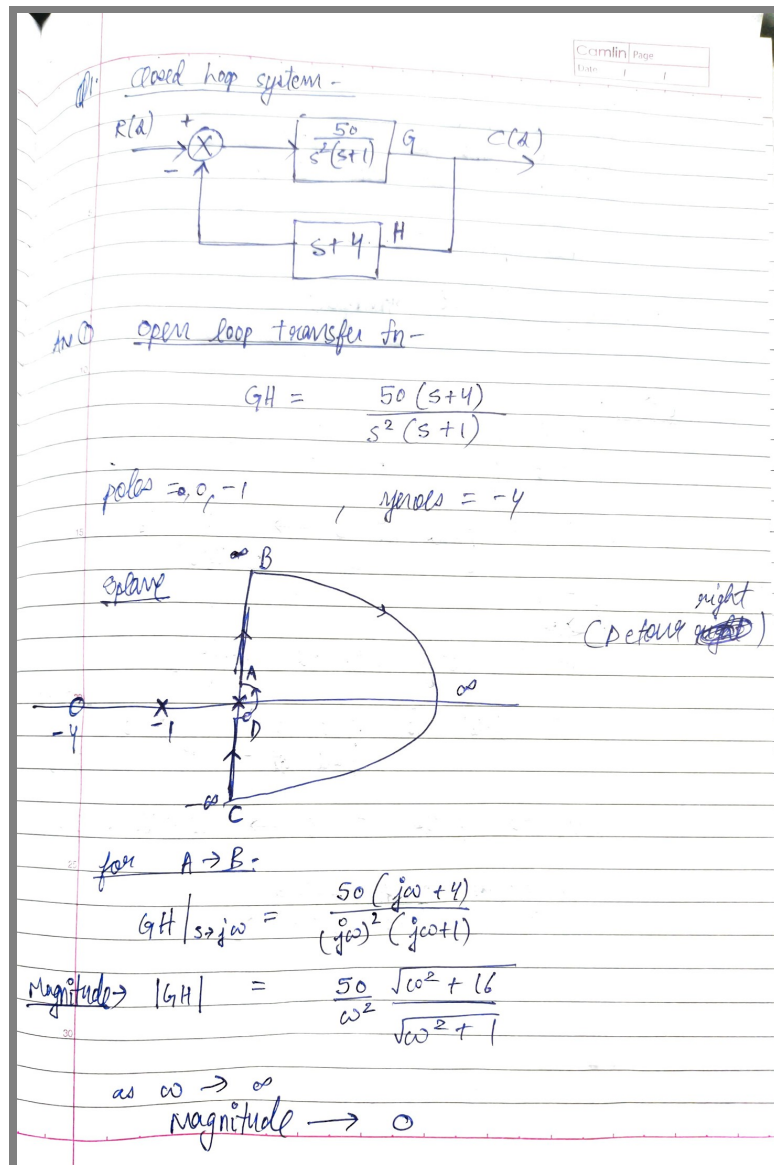 Camlin Page
Date / /
Q1. Closed loop system -
R(s) + - X 50/s²(s+1) G C(s)
s+4 H
AN ① open loop transfer fn -
GH = 50(s+4)/s²(s+1)
poles = 0, 0, -1 , zeroes = -4
∞ B
splane
right
(Detour )
A
∞
-4 -1 D
-∞ C
25
for A → B:
GH|s→jω = 50(jω+4)/(jω)²(jω+1)
Magnitude → |GH| = 50/ω² √ω²+16/√ω²+1
30
as ω → ∞
Magnitude → 0